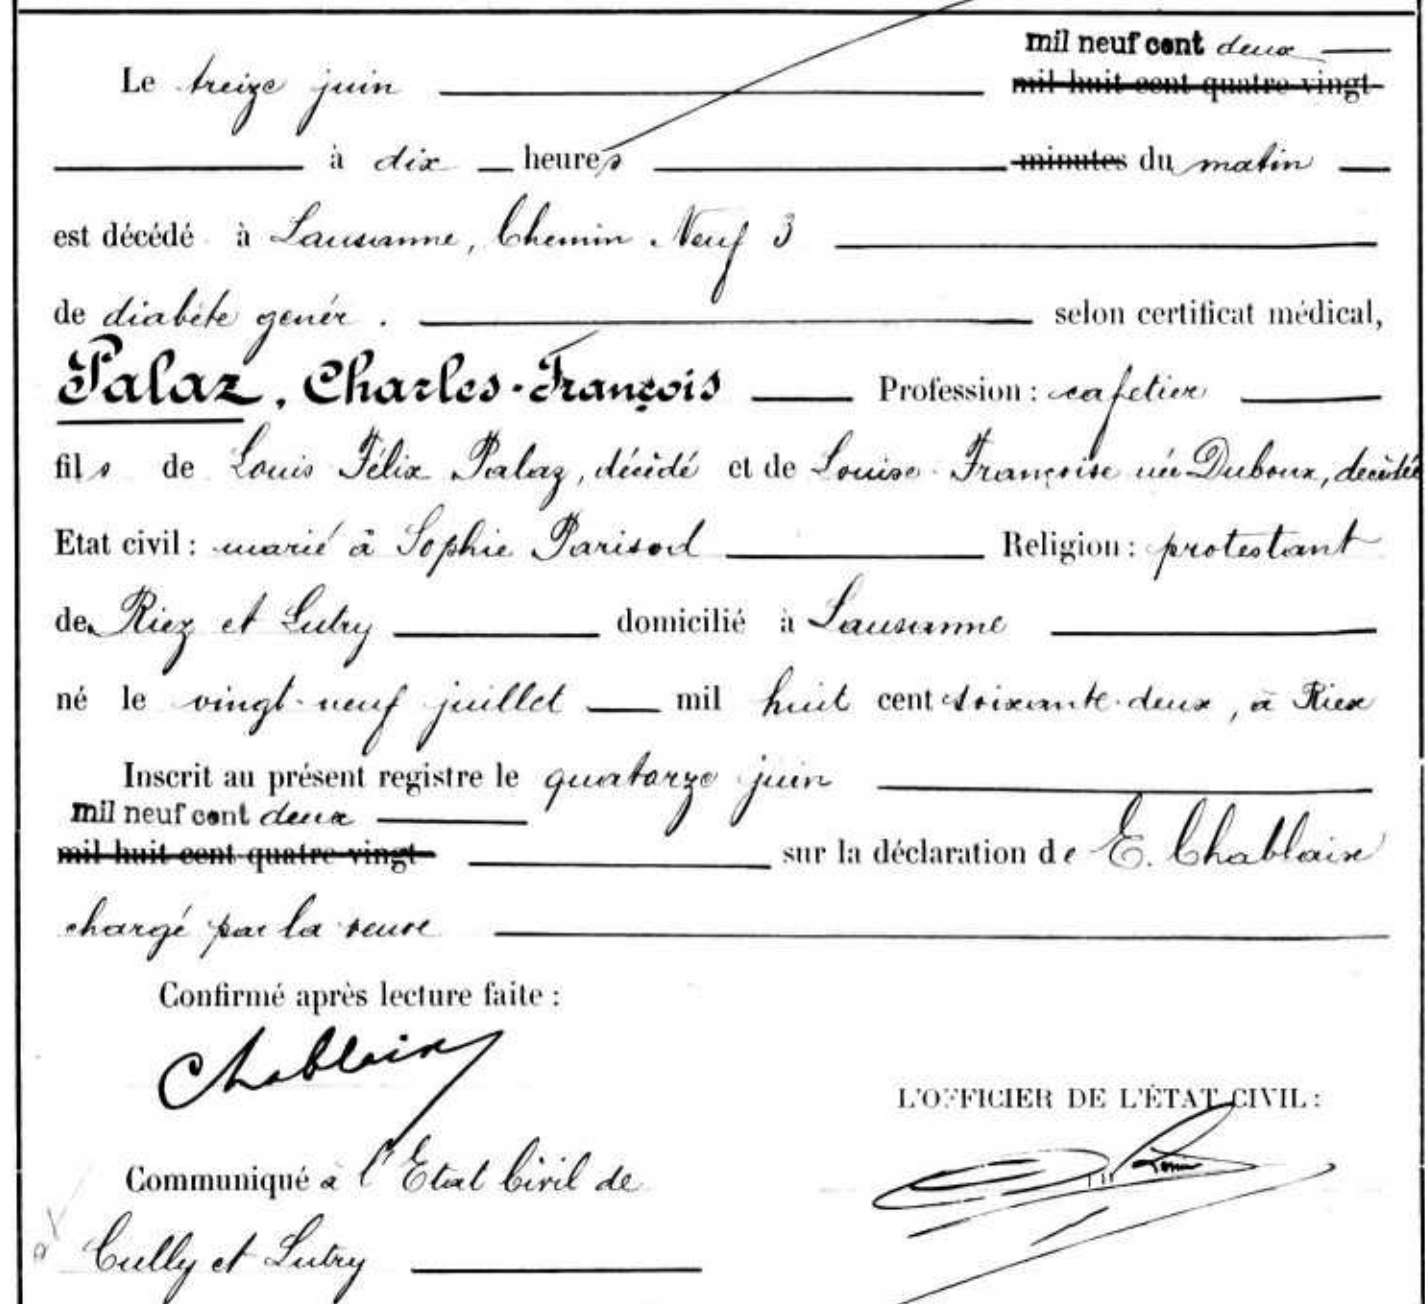 mil neuf cent deux
Le treize juin mil huit cent quatre-vingt
à dix heures minutes du matin
est décédé à Lausanne, Chemin Neuf 3
de diabète génér. selon certificat médical,
Palaz, Charles-François Profession : cafetier
fils de Louis Félix Palaz, décédé et de Louise-Françoise née Duboux, décédée
Etat civil : marié à Sophie Parisod Religion : protestant
de Riez et Lutry domicilié à Lausanne
né le vingt-neuf juillet mil huit cent soixante-deux, à Riex
Inscrit au présent registre le quatorze juin
mil neuf cent deux
mil huit cent quatre-vingt sur la déclaration de E. Chablaix
chargé par la veuve
Confirmé après lecture faite :
Chablaix
L'OFFICIER DE L'ÉTAT CIVIL :
Communiqué à l'Etat Civil de
Cully et Lutry